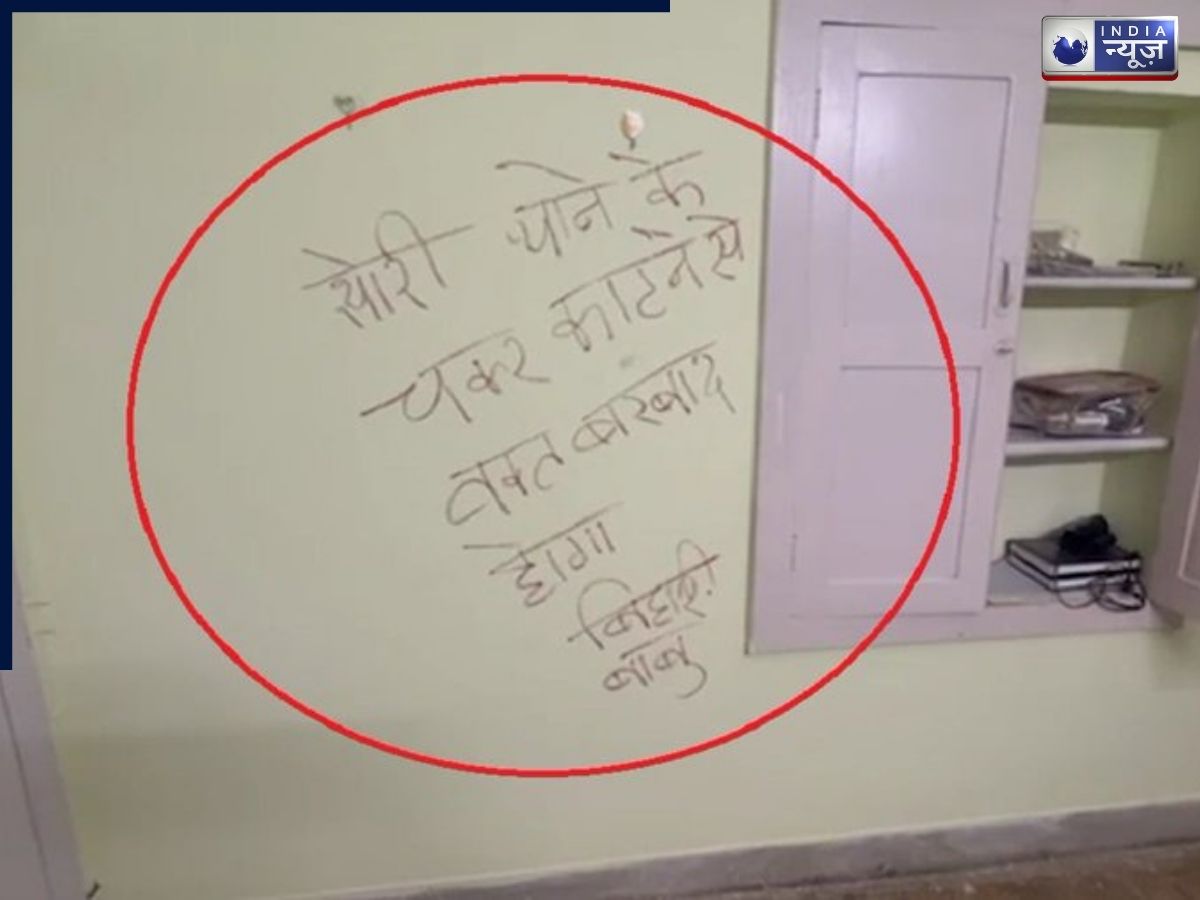 INDIA
न्यूज़
सोरी थाने के
चकर काटने से
वक्त बरबाद
होगा
बिहारी
बाबु